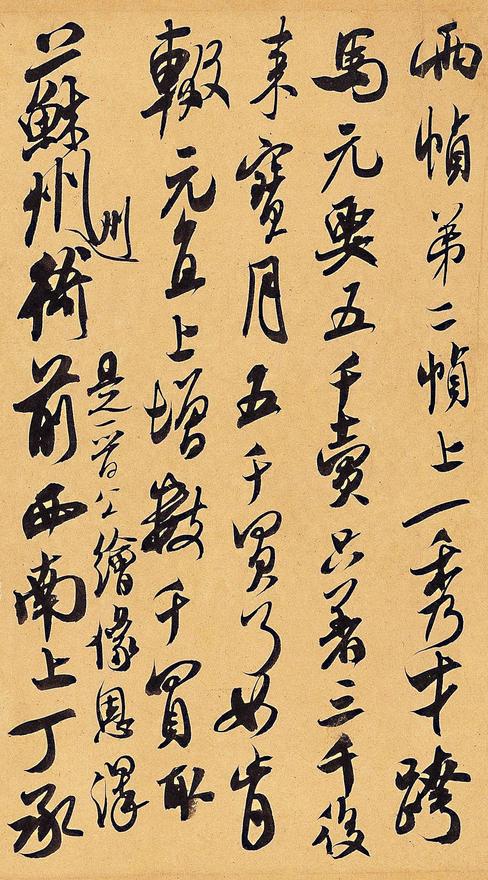 兩幀第二幀上一秀才跨
馬元要五千賣只著三千後
来寳月五千買了如肯
輟元直上增數千買取
蘇州衙前西南上丁承
州
是晉公繪像恩澤